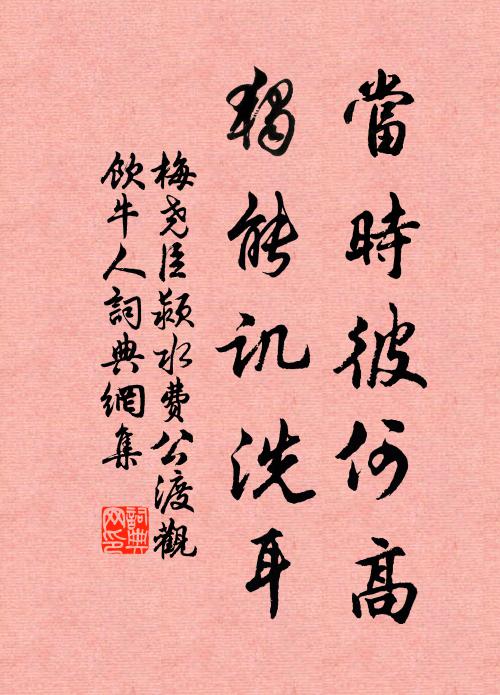 當時彼何高
獨能訊洗耳
梅堯臣潁水費公渡觀
飲牛人詞典網集
詞典
网印